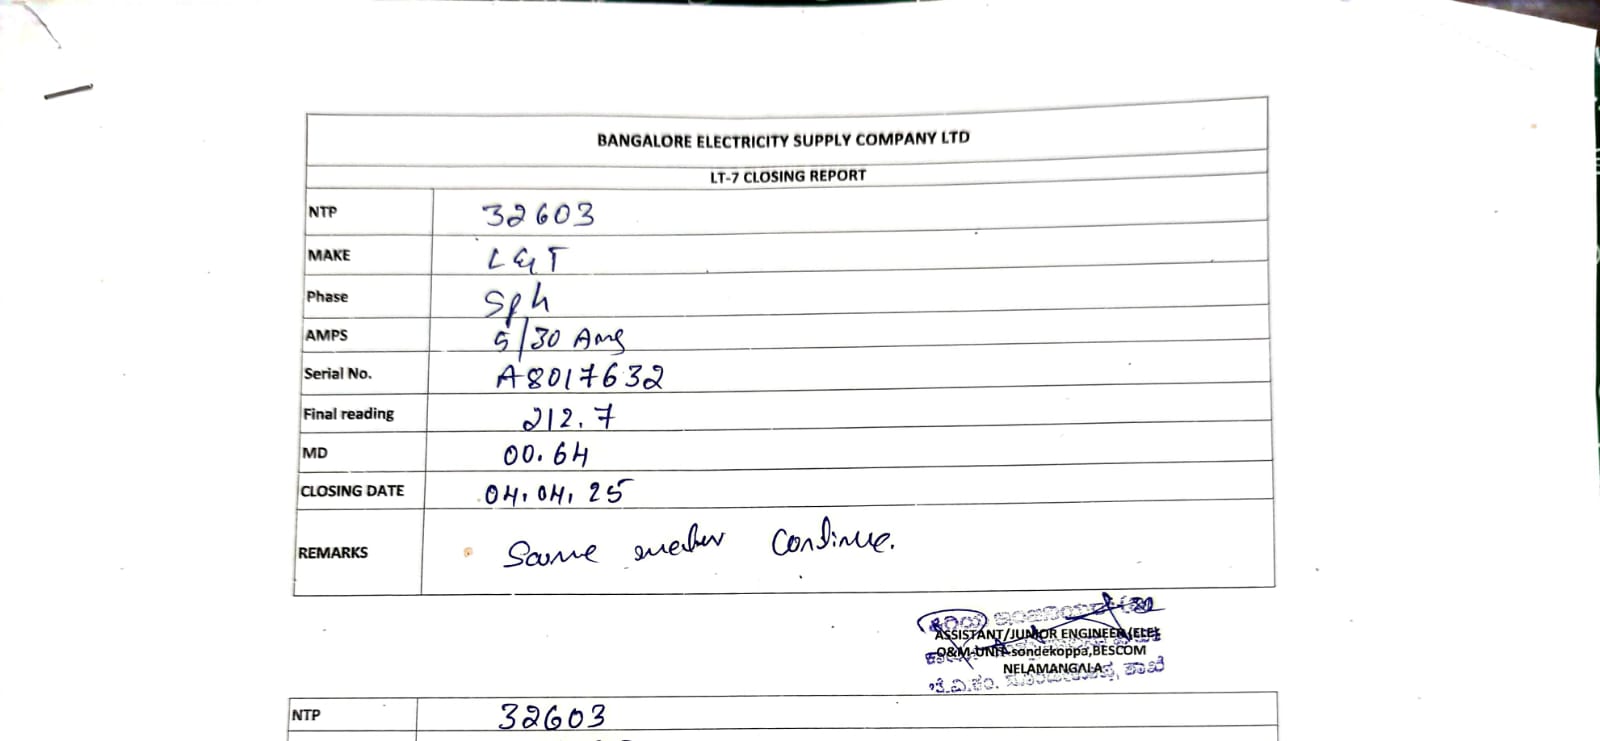 BANGALORE ELECTRICITY SUPPLY COMPANY LTD
LT-7 CLOSING REPORT
NTP 32603
MAKE L&T
Phase Sph
AMPS 5/30 Amp
Serial No. A8017632
Final reading 212.7
MD 00.64
CLOSING DATE 04.04.25
REMARKS Same meter Continue.
ಕಿರಿಯ
ASSISTANT/JUNIOR ENGINEER(ELE)
O&M-UNIT-sondekoppa,BESCOM
NELAMANGALA
ಬೆ.ವಿ.ಕಂ. ಶಾಖೆ
NTP 32603